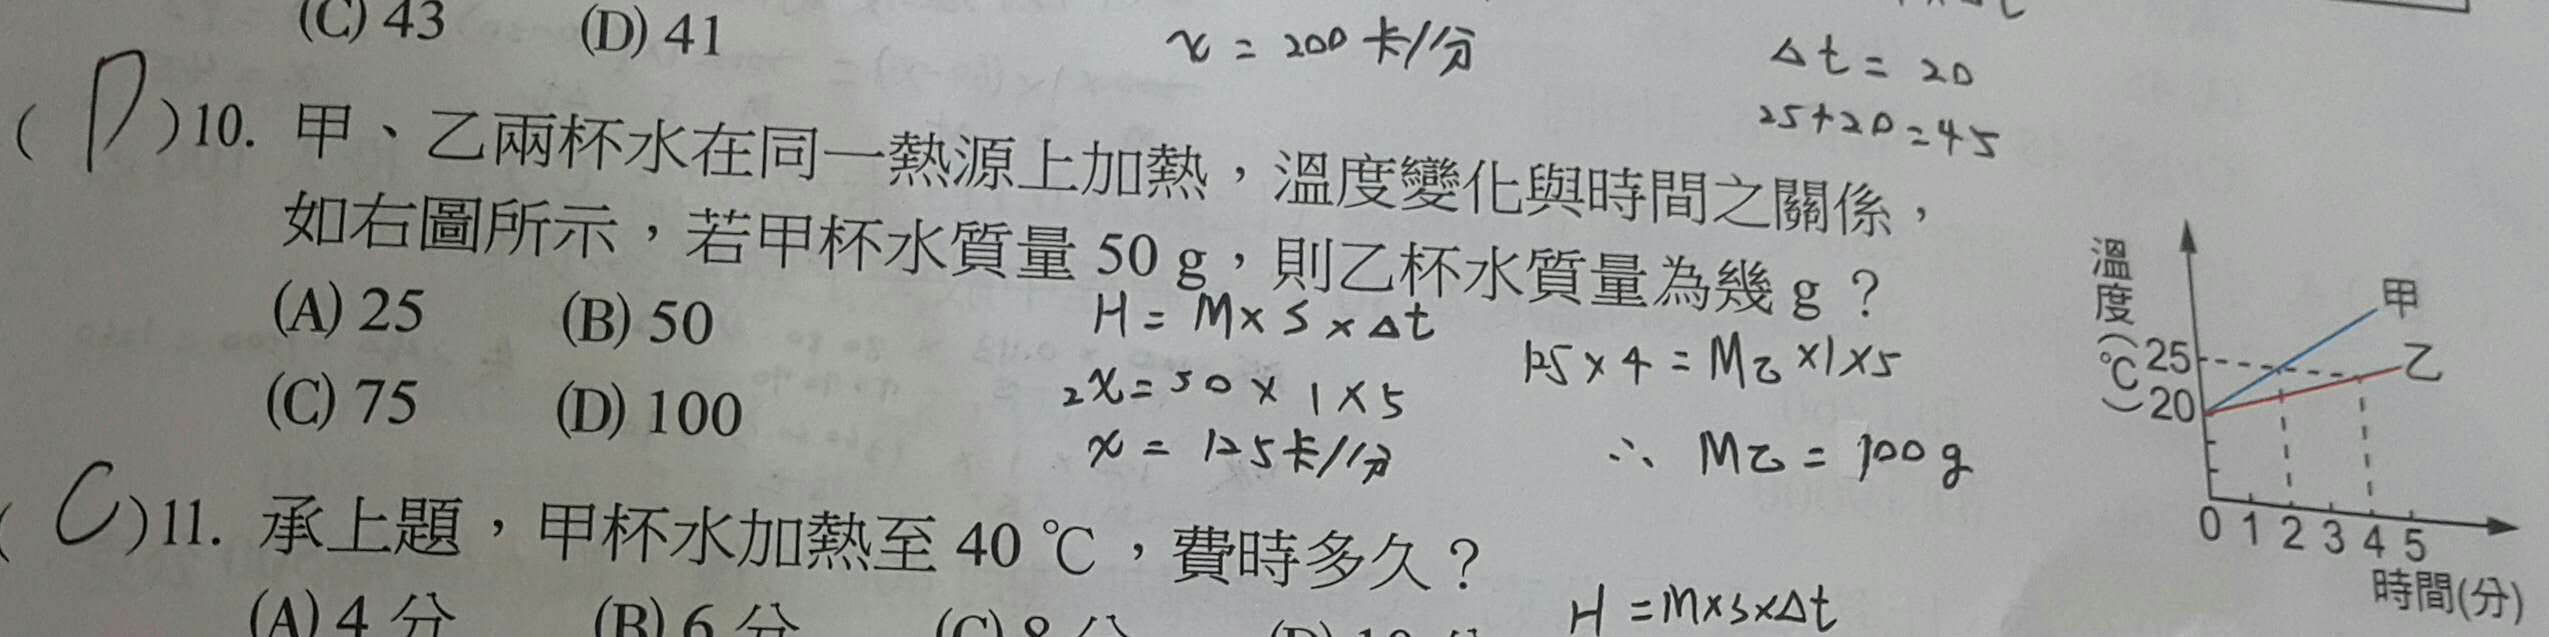 (C) 43 (D) 41
x = 200 卡/分
Δt = 20
25+20=45
(D)10. 甲、乙兩杯水在同一熱源上加熱，溫度變化與時間之關係，
如右圖所示，若甲杯水質量 50 g，則乙杯水質量為幾 g？
(A) 25 (B) 50
(C) 75 (D) 100
H = M×S×Δt
2x = 50 × 1 × 5
x = 125卡/分
125×4 = M乙×1×5
∴ M乙 = 100g
溫度(℃)
甲
乙
25
20
0 1 2 3 4 5
時間(分)
(C)11. 承上題，甲杯水加熱至 40 ℃，費時多久？
(A) 4 分 (B) 6 分 (C) 8 分
H = M×S×Δt